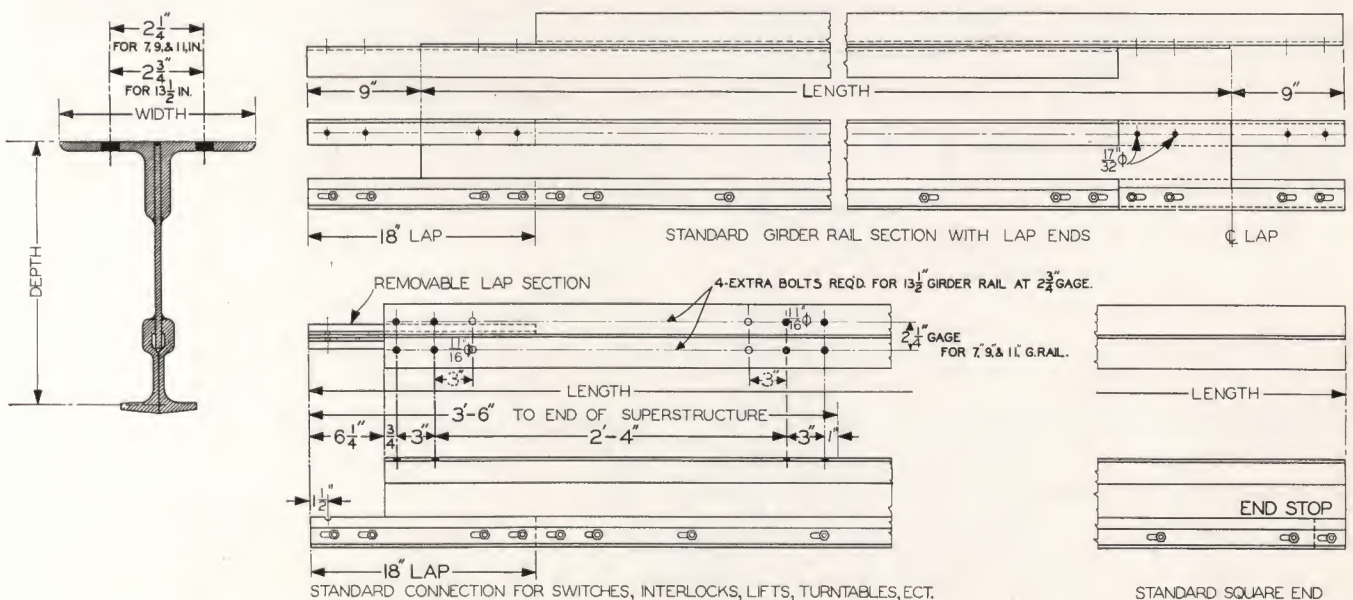 2 1/4"
FOR 7, 9, & 11, IN.
2 3/4"
FOR 13 1/2 IN.
WIDTH
DEPTH
9"
LENGTH
9"
17/32" ϕ
18" LAP
STANDARD GIRDER RAIL SECTION WITH LAP ENDS
℄ LAP
REMOVABLE LAP SECTION
4-EXTRA BOLTS REQ'D. FOR 13 1/2" GIRDER RAIL AT 2 3/4" GAGE.
11/16" ϕ
11/16" ϕ
2 1/4" GAGE
FOR 7," 9," & 11," G.RAIL.
3"
3"
LENGTH
3'-6" TO END OF SUPERSTRUCTURE
6 1/4"
3/4
3"
2'-4"
3"
1"
1 1/2"
18" LAP
STANDARD CONNECTION FOR SWITCHES, INTERLOCKS, LIFTS, TURNTABLES, ECT.
LENGTH
END STOP
STANDARD SQUARE END